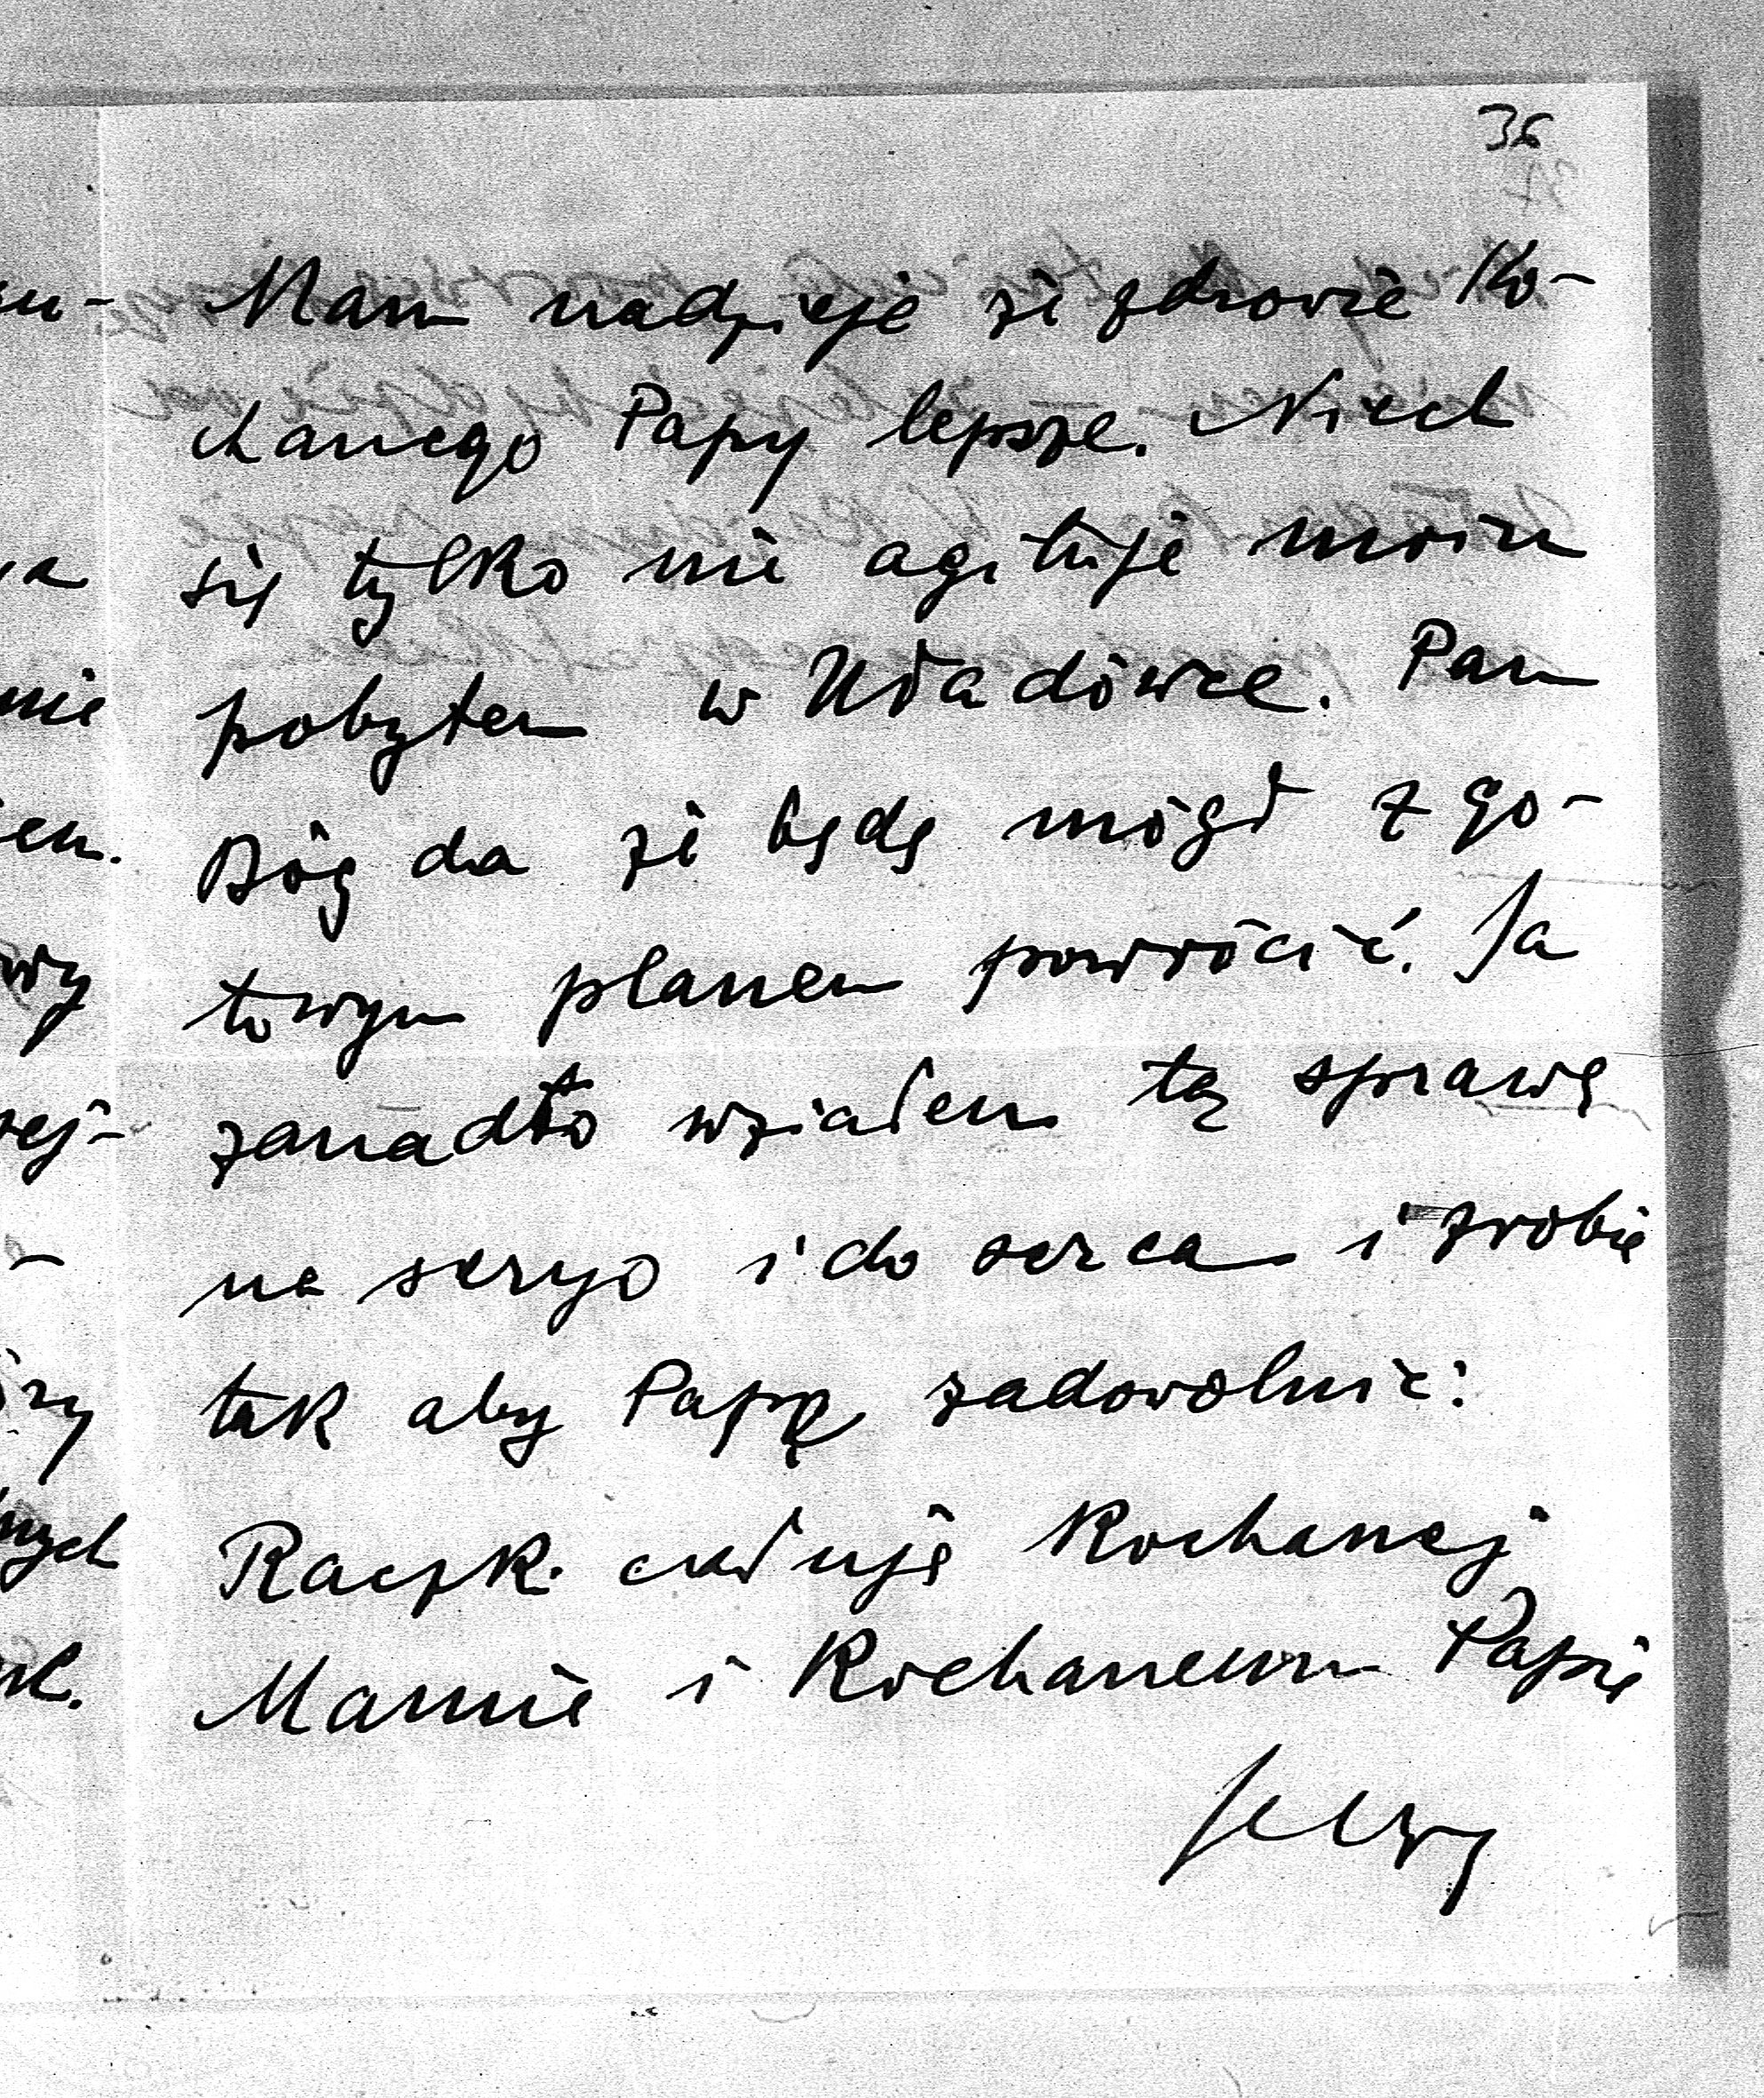 36
Mam nadzieję że zdrowie Ko-
chanego Papy lepsze. Niech
się tylko nie agituje moim
pobytem w Uładówce. Pan
Bóg da że będę mógł z go-
towym planem powrócić. Ja
zanadto wziąłem tę sprawę
na seryo i do serca i zrobię
tak aby Papę zadowolnić:
Raczk. całuję Kochanej
Mamie i Kochanemu Papie